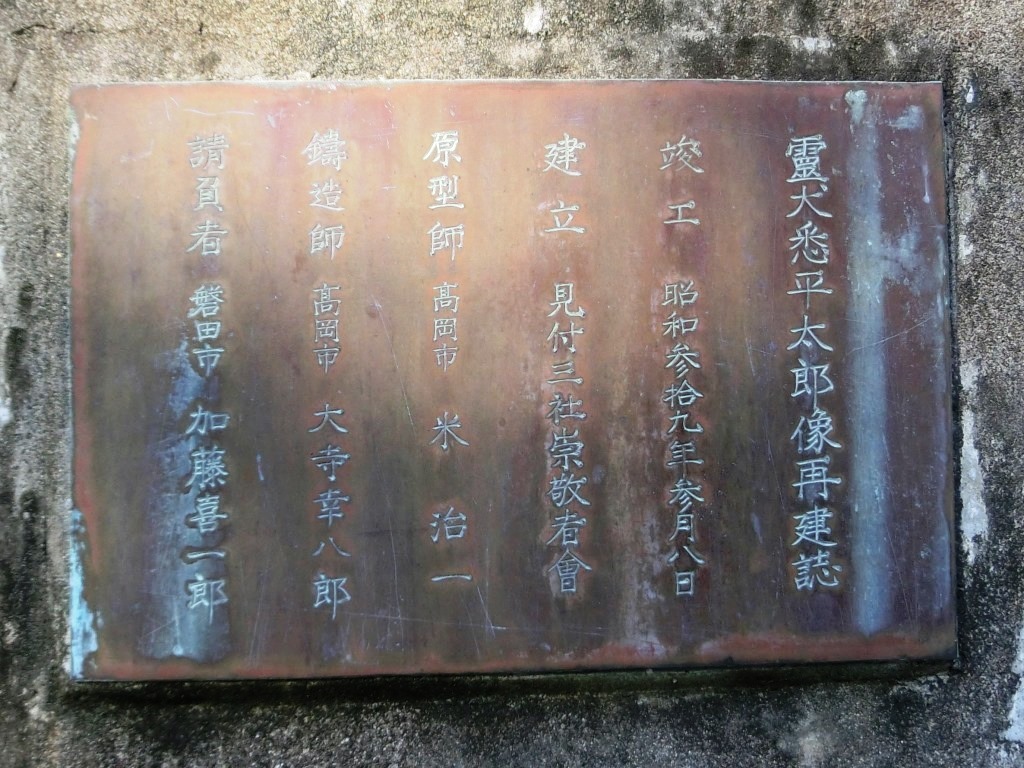 靈犬悉平太郎像再建誌
竣工 昭和参拾九年参月八日
建立 見付三社崇敬者會
原型師 髙岡市 米治一
鑄造師 髙岡市 大寺幸八郎
請負者 磐田市 加藤喜一郎